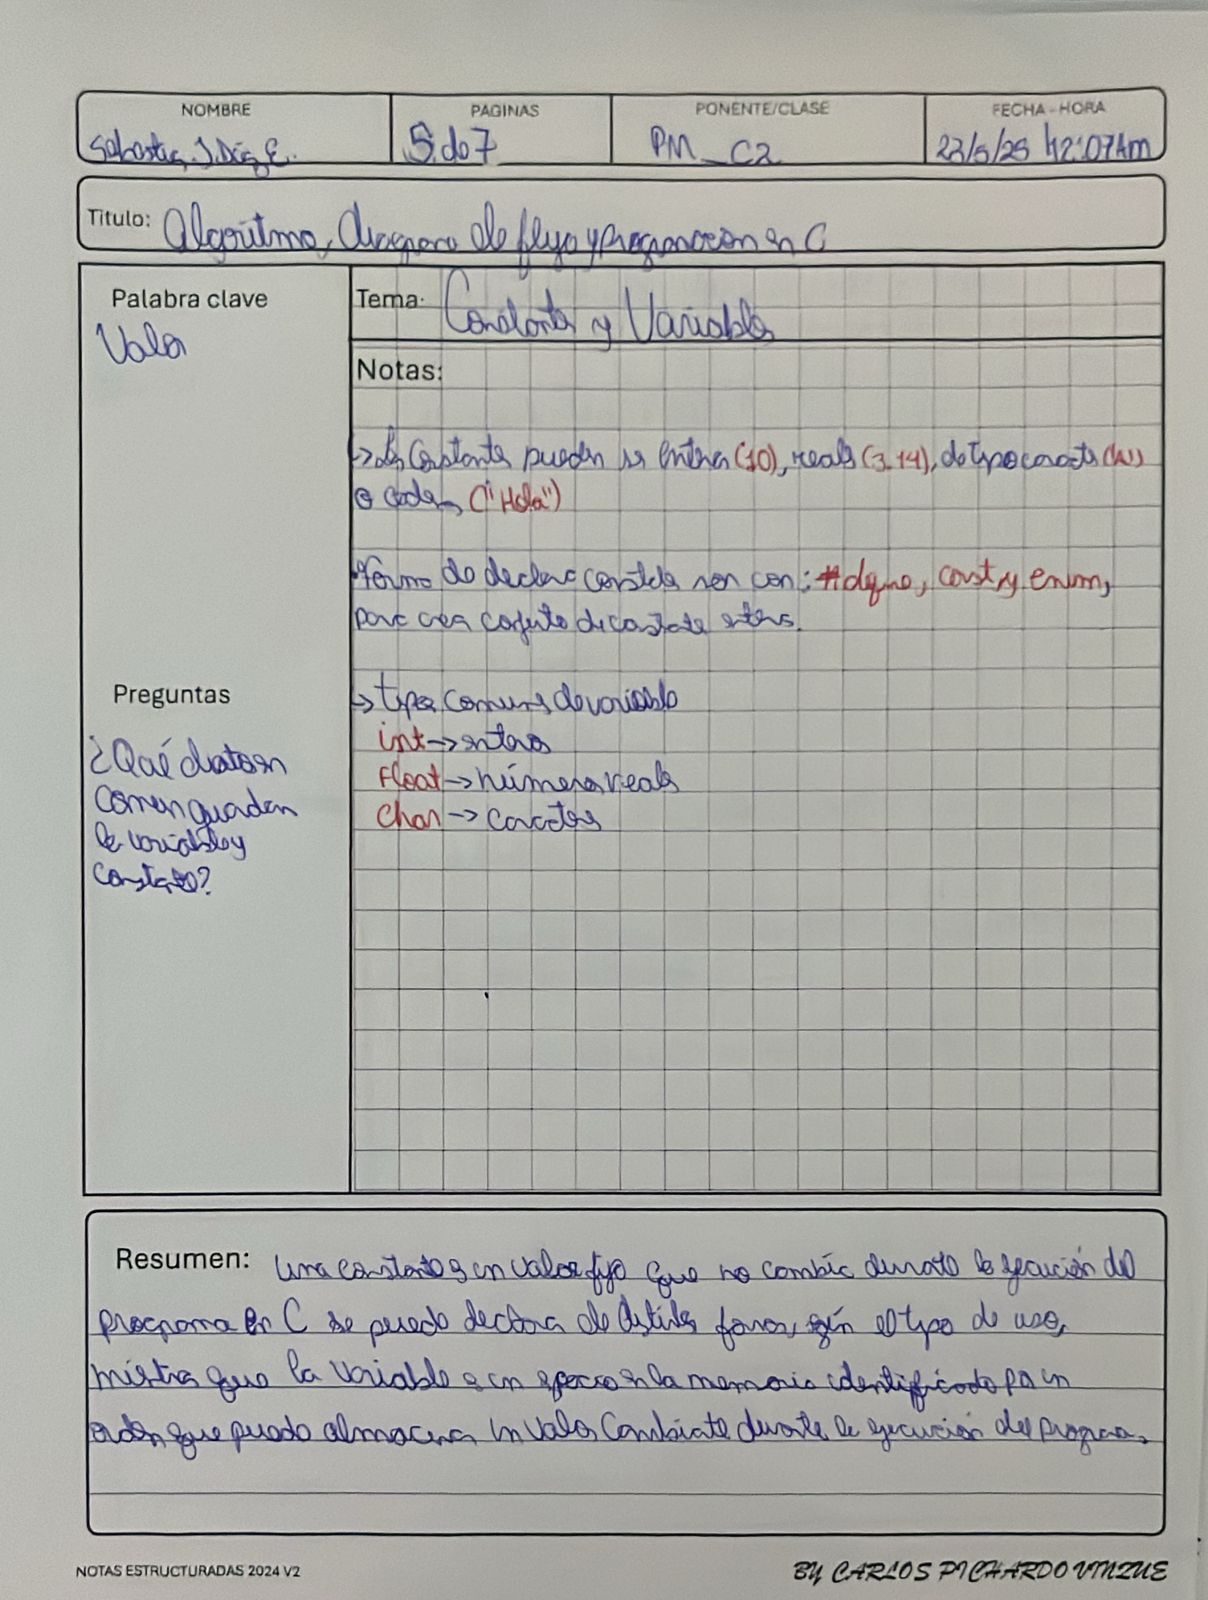 NOMBRE
PAGINAS
PONENTE/CLASE
FECHA - HORA
5 de 7
PM_C2
23/5/25 12:07Am
Titulo: Algoritmo, diagrama de flujo y programacion en C
Palabra clave
Tema: Constantes y Variables
Valor
Notas:
→ Las Constantes pueden ser enteras (10), reales (3.14), de tipo caracter
o cadena ("Hola")
forma de declarar constantes son con: #define, const y enum,
para crear conjunto de constante enteras.
Preguntas
→ tipos comunes de variable
int → enteros
float → números reales
char → caracteres
¿Qué datos en
comun guardan
la variable y
constante?
Resumen: Una constante es un valor fijo que no cambia durante la ejecución del
programa en C se puede declarar de distintas formas, según el tipo de uso,
mientras que la variable es un espacio en la memoria identificado por un
que puede almacenar un valor cambiante durante la ejecución del programa.
NOTAS ESTRUCTURADAS 2024 V2
BY CARLOS PICHARDO VINZUE